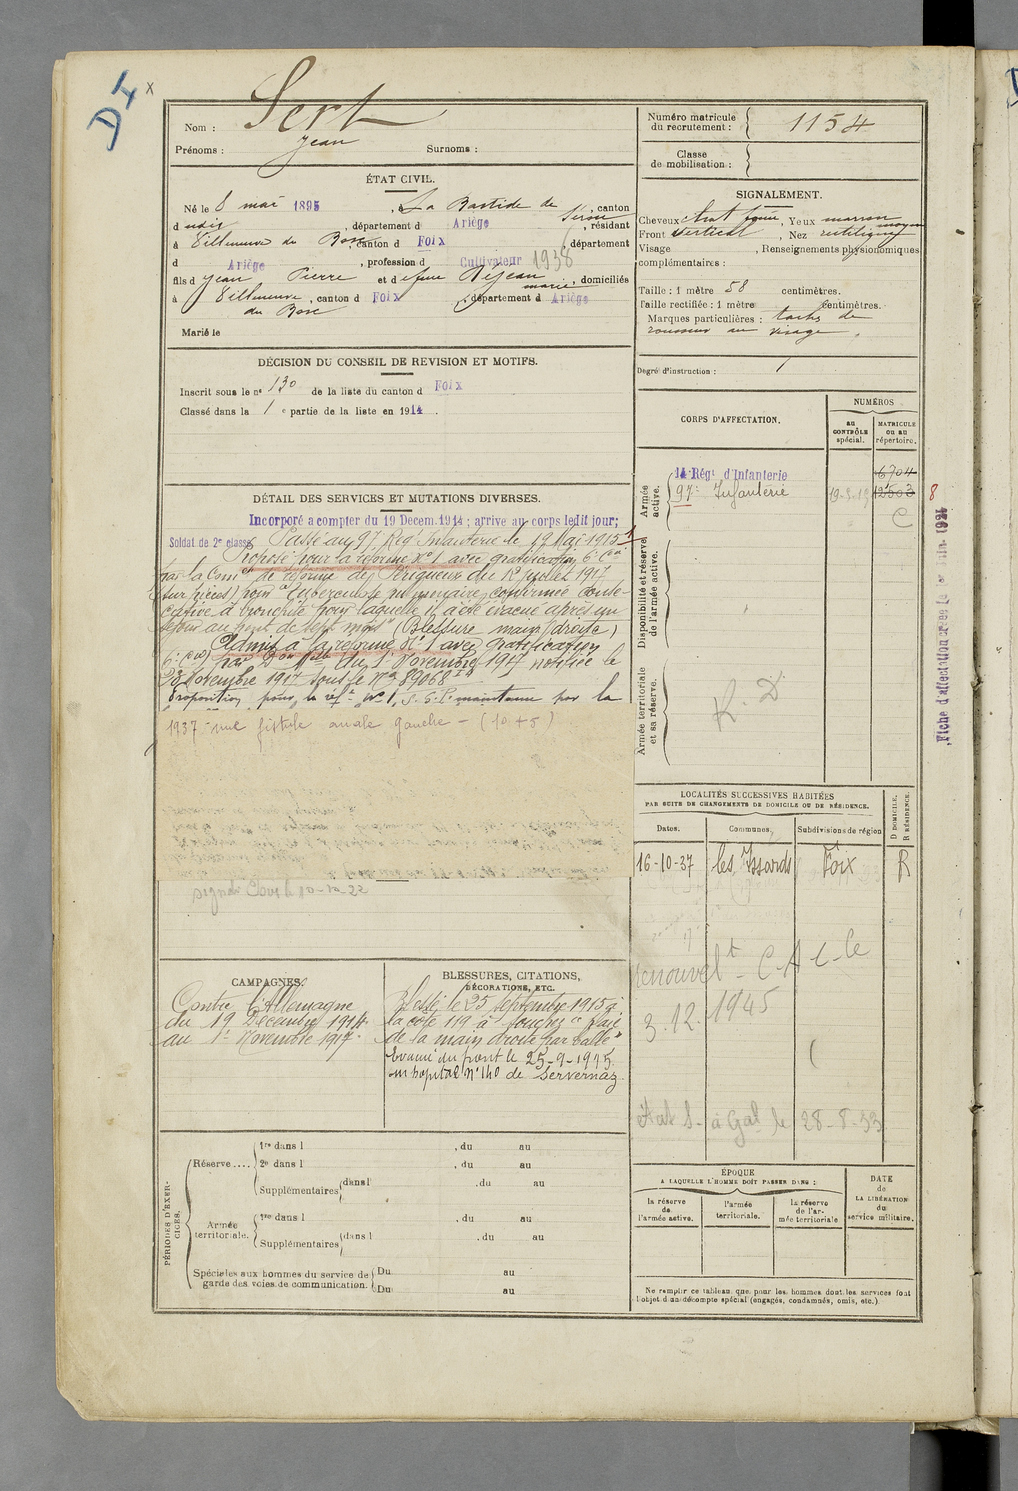 D I x
Nom : Sert
Prénoms : Jean Surnoms :
ÉTAT CIVIL.
Né le 8 mai 1895, à La Bastide de Sérou, canton
d udit, département d Ariège, résidant
à Villeneuve du Bosc, canton d Foix, département
d Ariège, profession d Cultivateur 1938
fils d Jean Pierre et d efunte Déjean marie, domiciliés
à Villeneuve du Bosc, canton d Foix, département d Ariège
Marié le
DÉCISION DU CONSEIL DE REVISION ET MOTIFS.
Inscrit sous le nº 130 de la liste du canton d Foix
Classé dans la 1 e partie de la liste en 1914.
DÉTAIL DES SERVICES ET MUTATIONS DIVERSES.
Incorporé a compter du 19 Decem. 1914 ; arrive au corps ledit jour;
Soldat de 2e classe. Passé au 97e Rég Infanterie le 19 Mai 1915
Proposé pour la réforme Nº 1 avec gratification 6e Cie
par la Com on de réforme de Périgueux du 12 juillet 1917
(sur pièces) pour "tuberculose pulmonaire confirmée
à bronchite pour laquelle il a été évacué après un
séjour au front de sept mois" (Blessure main droite)
Admis à la réforme Nº 1 avec gratification
6e par du 1er Novembre 1917 notifiée le
28 Novembre 1917 sous le Nº 89068
Proposition pour la réf. nº 1, maintenue par la
1937 - une fistule anale gauche - (10 + 5)
10-10-22
CAMPAGNES.
Contre l'Allemagne
du 19 Décembre 1914
au 1er Novembre 1917.
BLESSURES, CITATIONS,
DÉCORATIONS, ETC.
Blessé le 25 septembre 1915 à
la cote 119 à Souchez "plaie
de la main droite par balle"
Evacué du front le 25-9-1915
sur hopital Nº 140 de Servernaz
PÉRIODES D'EXERCICES.
Réserve.... 1re dans l , du au
2e dans l , du au
Supplémentaires dans l , du au
Armée territoriale. 1re dans l , du au
Supplémentaires dans l , du au
Spéciales aux hommes du service de garde des voies de communication. Du au
Du au
Numéro matricule du recrutement : 1154
Classe de mobilisation :
SIGNALEMENT.
Cheveux chat foncé, Yeux marron
Front vertical, Nez rectiligne moyen
Visage , Renseignements physionomiques
complémentaires :
Taille : 1 mètre 58 centimètres.
Taille rectifiée : 1 mètre centimètres.
Marques particulières : taches de
rousseur au visage.
Degré d'instruction : 1
CORPS D'AFFECTATION.
NUMÉROS
au CONTRÔLE spécial.
MATRICULE ou au répertoire.
Armée active.
14 Régt d'Infanterie 6704
97e Infanterie 19-5-15 12503 8
C
Disponibilité et réserve de l'armée active.
Armée territoriale et sa réserve.
R. D.
Fiche d'affectation créée le 1er Juin 1921
LOCALITÉS SUCCESSIVES HABITÉES
PAR SUITE DE CHANGEMENTS DE DOMICILE OU DE RÉSIDENCE.
Dates. Communes. Subdivisions de région D DOMICILE. R RÉSIDENCE.
16-10-37 les Issards Foix R
renouvelt - C-A-C-le
3.12.1945
Etat S- à Gal le 28-8-33
ÉPOQUE
A LAQUELLE L'HOMME DOIT PASSER DANS :
la réserve de l'armée active.
l'armée territoriale.
la réserve de l'armée territoriale
DATE de LA LIBÉRATION du service militaire.
Ne remplir ce tableau que pour les hommes dont les services font
l'objet d'un décompte spécial (engagés, condamnés, omis, etc.).